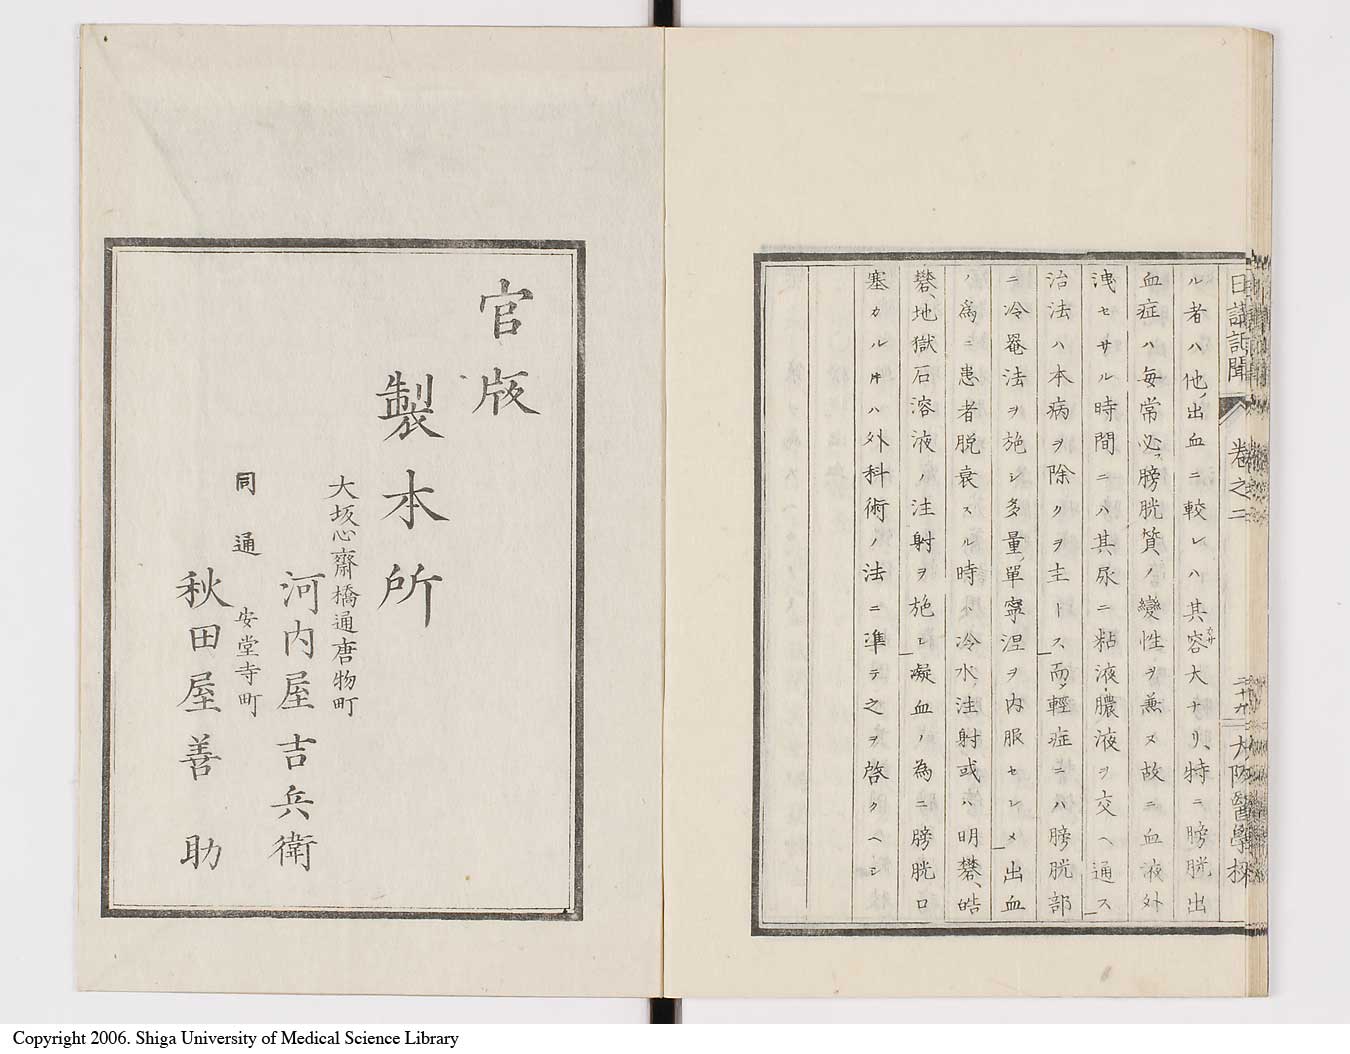 日講記聞 卷之二 二十九 大阪醫學校
ル者ハ他ノ出血ニ較レハ其容大ナリ、特ニ膀胱出
血症ハ毎常必ス膀胱質ノ變性ヲ兼ヌ故ニ血液外
洩セサル時間ニハ其尿ニ粘液膿液ヲ交ヘ通ス
治法ハ本病ヲ除クヲ主トス而メ輕症ニハ膀胱部
ニ冷罨法ヲ施シ多量ノ單寧涅ヲ内服セシメ出血
ノ爲ニ患者脱衰スル時ハ冷水ノ注射或ハ明礬、皓
礬、地獄石溶液ノ注射ヲ施シ凝血ノ為ニ膀胱口
塞カル片ハ外科術ノ法ニ準テ之ヲ啓クヘシ
官版
製本所
大坂心齋橋通唐物町
河内屋吉兵衛
同通 安堂寺町
秋田屋善助
Copyright 2006. Shiga University of Medical Science Library